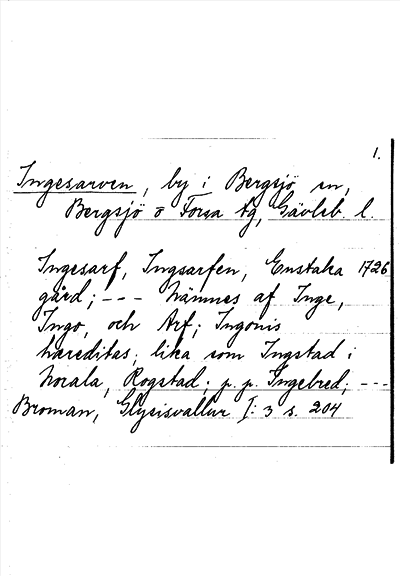 1.
Ingesarven, by i Bergsjö sn,
Bergsjö o Forsa tg, Gävleb. l.
Ingesarf, Ingsarfen, Enstaka 1726
gård; --- Nämnes af Inge,
Ingo, och Arf; Ingonis
hæreditas; lika som Ingstad i
Norala, Rogstad; p. p. Ingebred; ---
Broman, Glysisvallur I: 3 s. 204